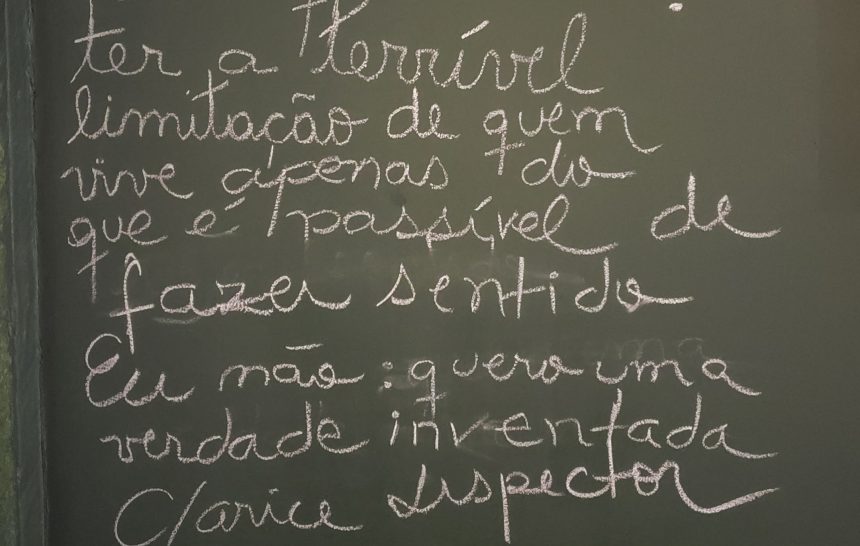 ter a terrível
limitação de quem
vive apenas do
que é passível de
fazer sentido
Eu não: quero uma
verdade inventada
Clarice Lispector